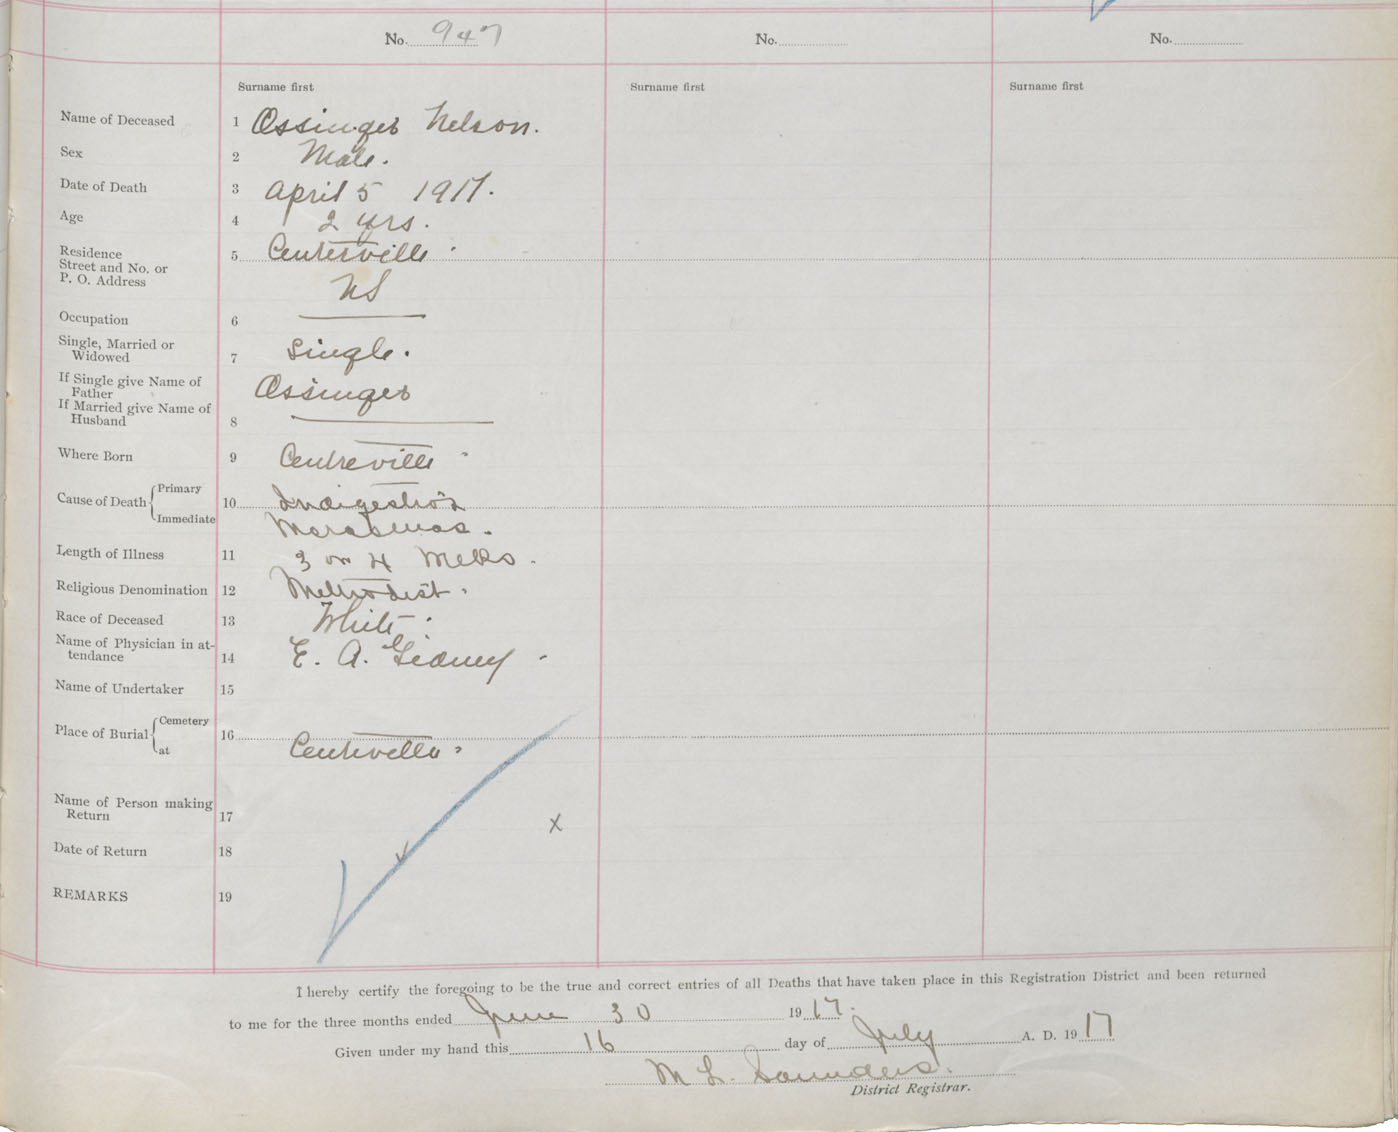 No. 947
No.
No.
Surname first
Surname first
Surname first
Name of Deceased 1 Ossinger Nelson.
Sex 2 Male.
Date of Death 3 April 5 1917.
Age 4 2 yrs.
Residence
Street and No. or
P. O. Address
5 Centerville
NS
Occupation 6
Single, Married or
Widowed 7 Single.
If Single give Name of
Father
Ossinger
If Married give Name of
Husband 8
Where Born 9 Centreville
Cause of Death
Primary
10 Indigestion
Immediate
Marasmas.
Length of Illness 11 3 or 4 Weeks.
Religious Denomination 12 Methodist.
Race of Deceased 13 White.
Name of Physician in at-
tendance 14 E. A. Gidney
Name of Undertaker 15
Place of Burial 16
Cemetery
at
Centreville
Name of Person making
Return 17
x
Date of Return 18
REMARKS 19
I hereby certify the foregoing to be the true and correct entries of all Deaths that have taken place in this Registration District and been returned
to me for the three months ended June 30 1917.
Given under my hand this 16 day of July A. D. 1917
M L. Saunders.
District Registrar.